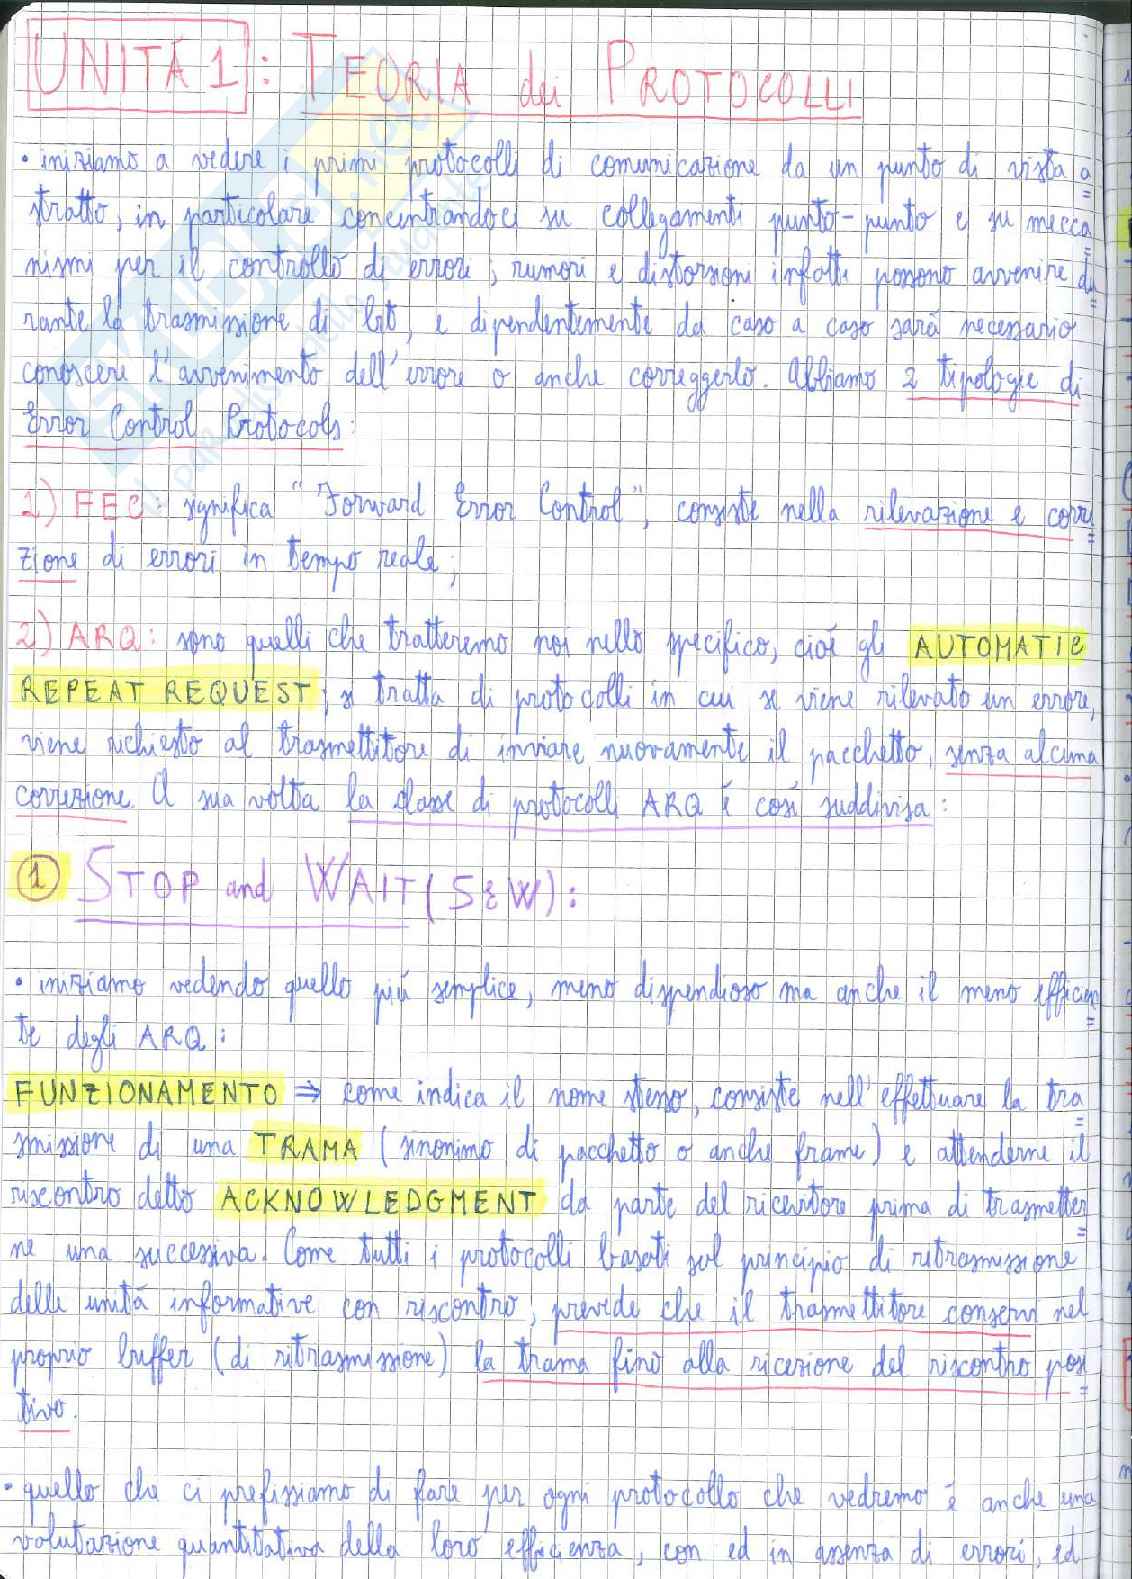 UNITÁ 1: TEORIA dei PROTOCOLLI
• iniziamo a vedere i primi protocolli di comunicazione da un punto di vista a
stratto, in particolare concentrandoci su collegamenti punto-punto e su mecca
nismi per il controllo di errori; rumori e distorsioni infatti possono avvenire du
rante la trasmissione di bit, e dipendentemente da caso a caso sará necessario
conoscere l'avvenimento dell'errore o anche correggerlo. Abbiamo 2 tipologie di
Error Control Protocols:
1) FEC: significa "Forward Error Control", consiste nella rilevazione e corre
zione di errori in tempo reale;
2) ARQ: sono quelli che tratteremo noi nello specifico, cioé gli AUTOMATIC
REPEAT REQUEST; si tratta di protocolli in cui se viene rilevato un errore,
viene richiesto al trasmettitore di inviare nuovamente il pacchetto, senza alcuna
correzione. A sua volta la classe di protocolli ARQ é cosí suddivisa:
1 STOP and WAIT (S&W):
• iniziamo vedendo quello piú semplice, meno dispendioso ma anche il meno efficien
te degli ARQ:
FUNZIONAMENTO ⇒ come indica il nome stesso, consiste nell'effettuare la tra
smissione di una TRAMA (sinonimo di pacchetto o anche frame) e attenderne il
riscontro detto ACKNOWLEDGMENT da parte del ricevitore prima di trasmetter
ne una successiva. Come tutti i protocolli basati sul principio di ritrasmissione
delle unitá informative con riscontro, prevede che il trasmettitore conservi nel
proprio buffer (di ritrasmissione) la trama fino alla ricezione del riscontro posi
tivo.
• quello che ci prefissiamo di fare per ogni protocollo che vedremo é anche una
valutazione quantitativa della loro efficienza, con ed in assenza di errori, ed